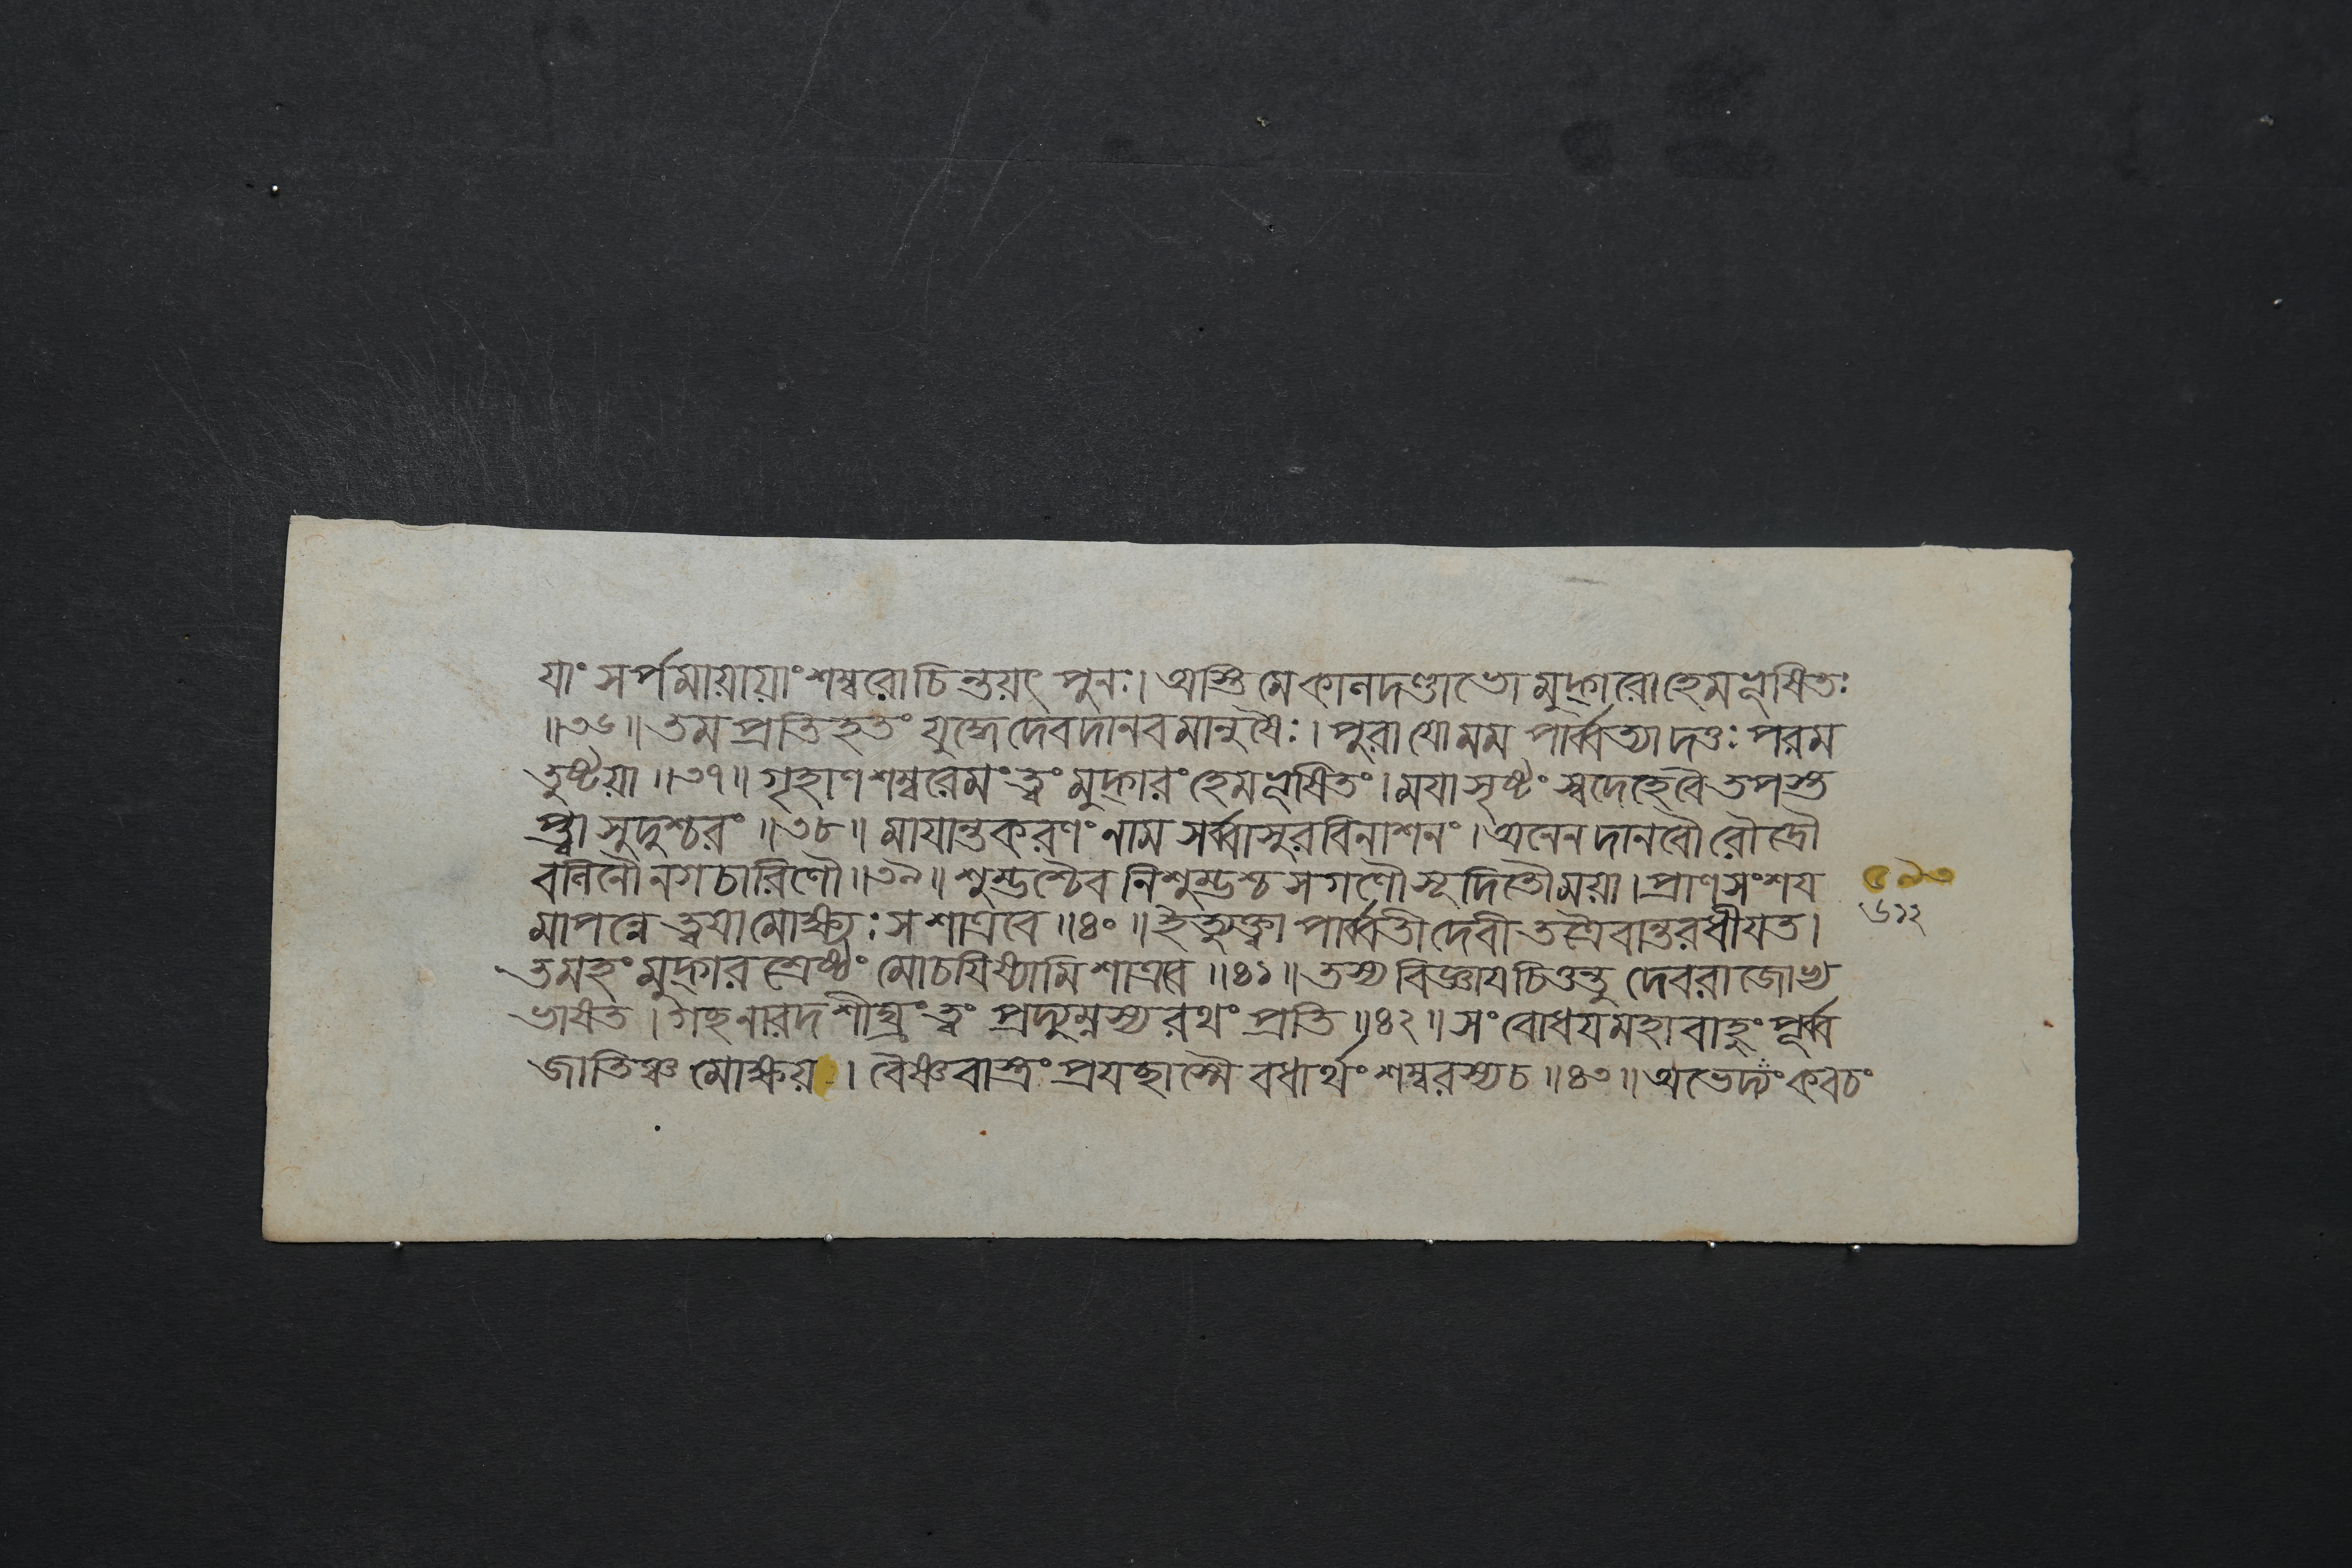 যাং সর্পমায়ায়াং শম্বরোচিন্তয়ৎ পুনঃ। অস্তি মে কালদণ্ডাভো মুদ্গরো হেমভূষিতঃ
॥৩৬॥ তম প্রতিহতং যুদ্ধে দেবদানবমানুষৈঃ। পুরা যো মম পার্ব্বত্যা দত্তঃ পরম
তুষ্টয়া ॥৩৭॥ গৃহাণ শম্বরেমং ত্বং মুদ্গরং হেমভূষিতং। ময়া সৃষ্টং স্বদেহে বৈ তপস্ত
প্ত্বা সুদুশ্চরং ॥৩৮॥ মায়ান্তকরণং নাম সর্ব্বাসুরবিনাশনং। অনেন দানবৌ রৌদ্রৌ
বলিনৌ নগচারিণৌ ॥৩৯॥ শুম্ভশ্চৈব নিশুম্ভশ্চ সগণৌ সূদিতৌ ময়া। প্রাণসংশয়
মাপন্নে ত্বয়া মোক্ষ্যঃ স শাত্রবে ॥৪০॥ ইত্যুক্ত্বা পার্ব্বতী দেবী তত্রৈবান্তরধীয়ত।
তমহং মুদ্গরশ্রেষ্ঠং মোচয়িষ্যামি শাত্রবে ॥৪১॥ তস্য বিজ্ঞায় চিত্তন্তু দেবরাজোভ্য
ভাষত। গচ্ছ নারদ শীঘ্রং ত্বং প্রদ্যুম্নস্য রথং প্রতি ॥৪২॥ সংবোধয় মহাবাহুং পূর্ব্ব
জাতিঞ্চ মোক্ষয়। বৈষ্ণবাস্ত্রং প্রযচ্ছাস্মৈ বধার্থং শম্বরস্য চ ॥৪৩॥ অভেদ্যং কবচং
৬১২